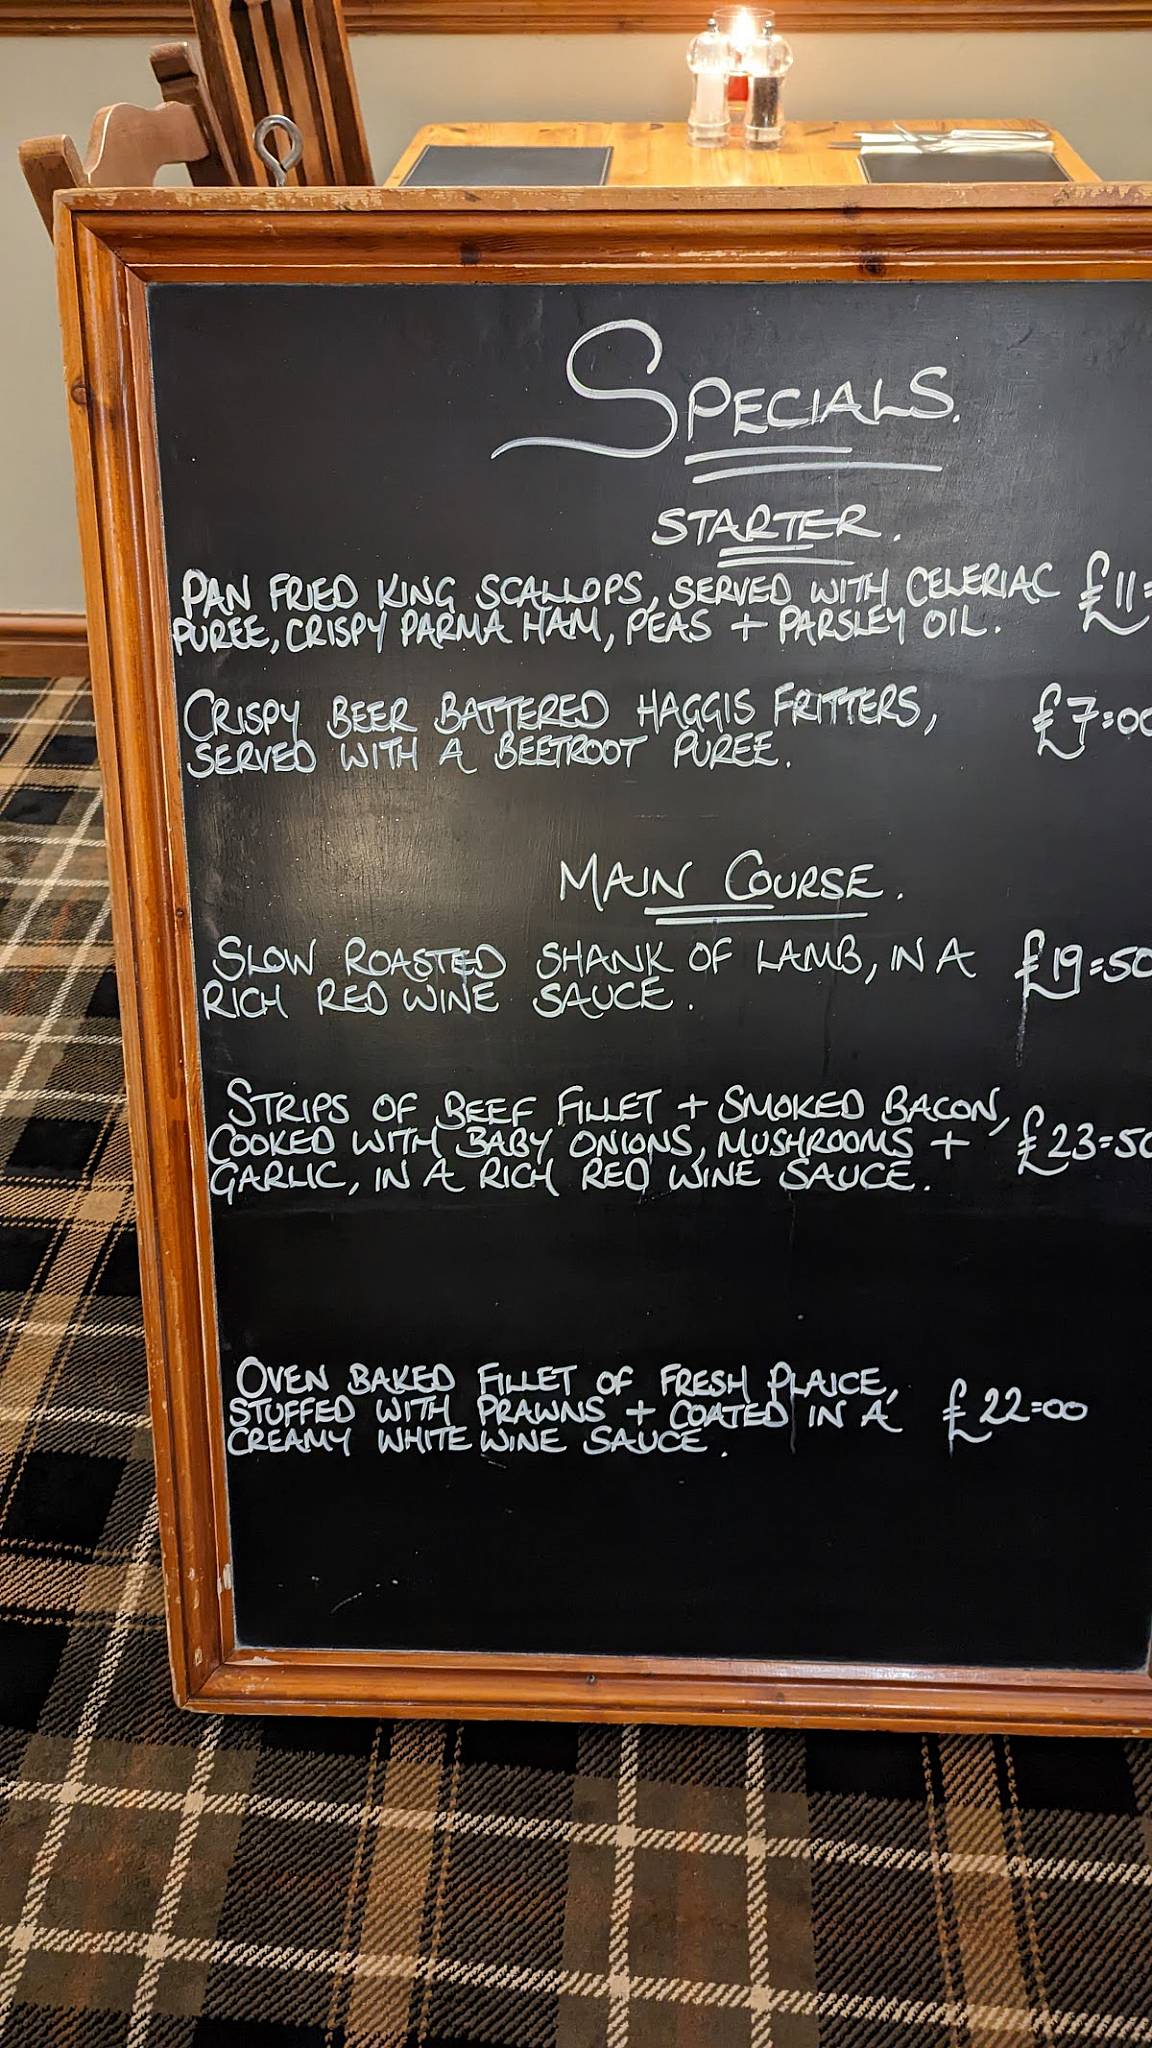 SPECIALS.
STARTER.
PAN FRIED KING SCALLOPS, SERVED WITH CELERIAC £11=
PUREE, CRISPY PARMA HAM, PEAS + PARSLEY OIL.
CRISPY BEER BATTERED HAGGIS FRITTERS, £7=00
SERVED WITH A BEETROOT PUREE.
MAIN COURSE.
SLOW ROASTED SHANK OF LAMB, IN A £19=50
RICH RED WINE SAUCE.
STRIPS OF BEEF FILLET + SMOKED BACON,
COOKED WITH BABY ONIONS, MUSHROOMS + £23=50
GARLIC, IN A RICH RED WINE SAUCE.
OVEN BAKED FILLET OF FRESH PLAICE,
STUFFED WITH PRAWNS + COATED IN A £22=00
CREAMY WHITE WINE SAUCE.